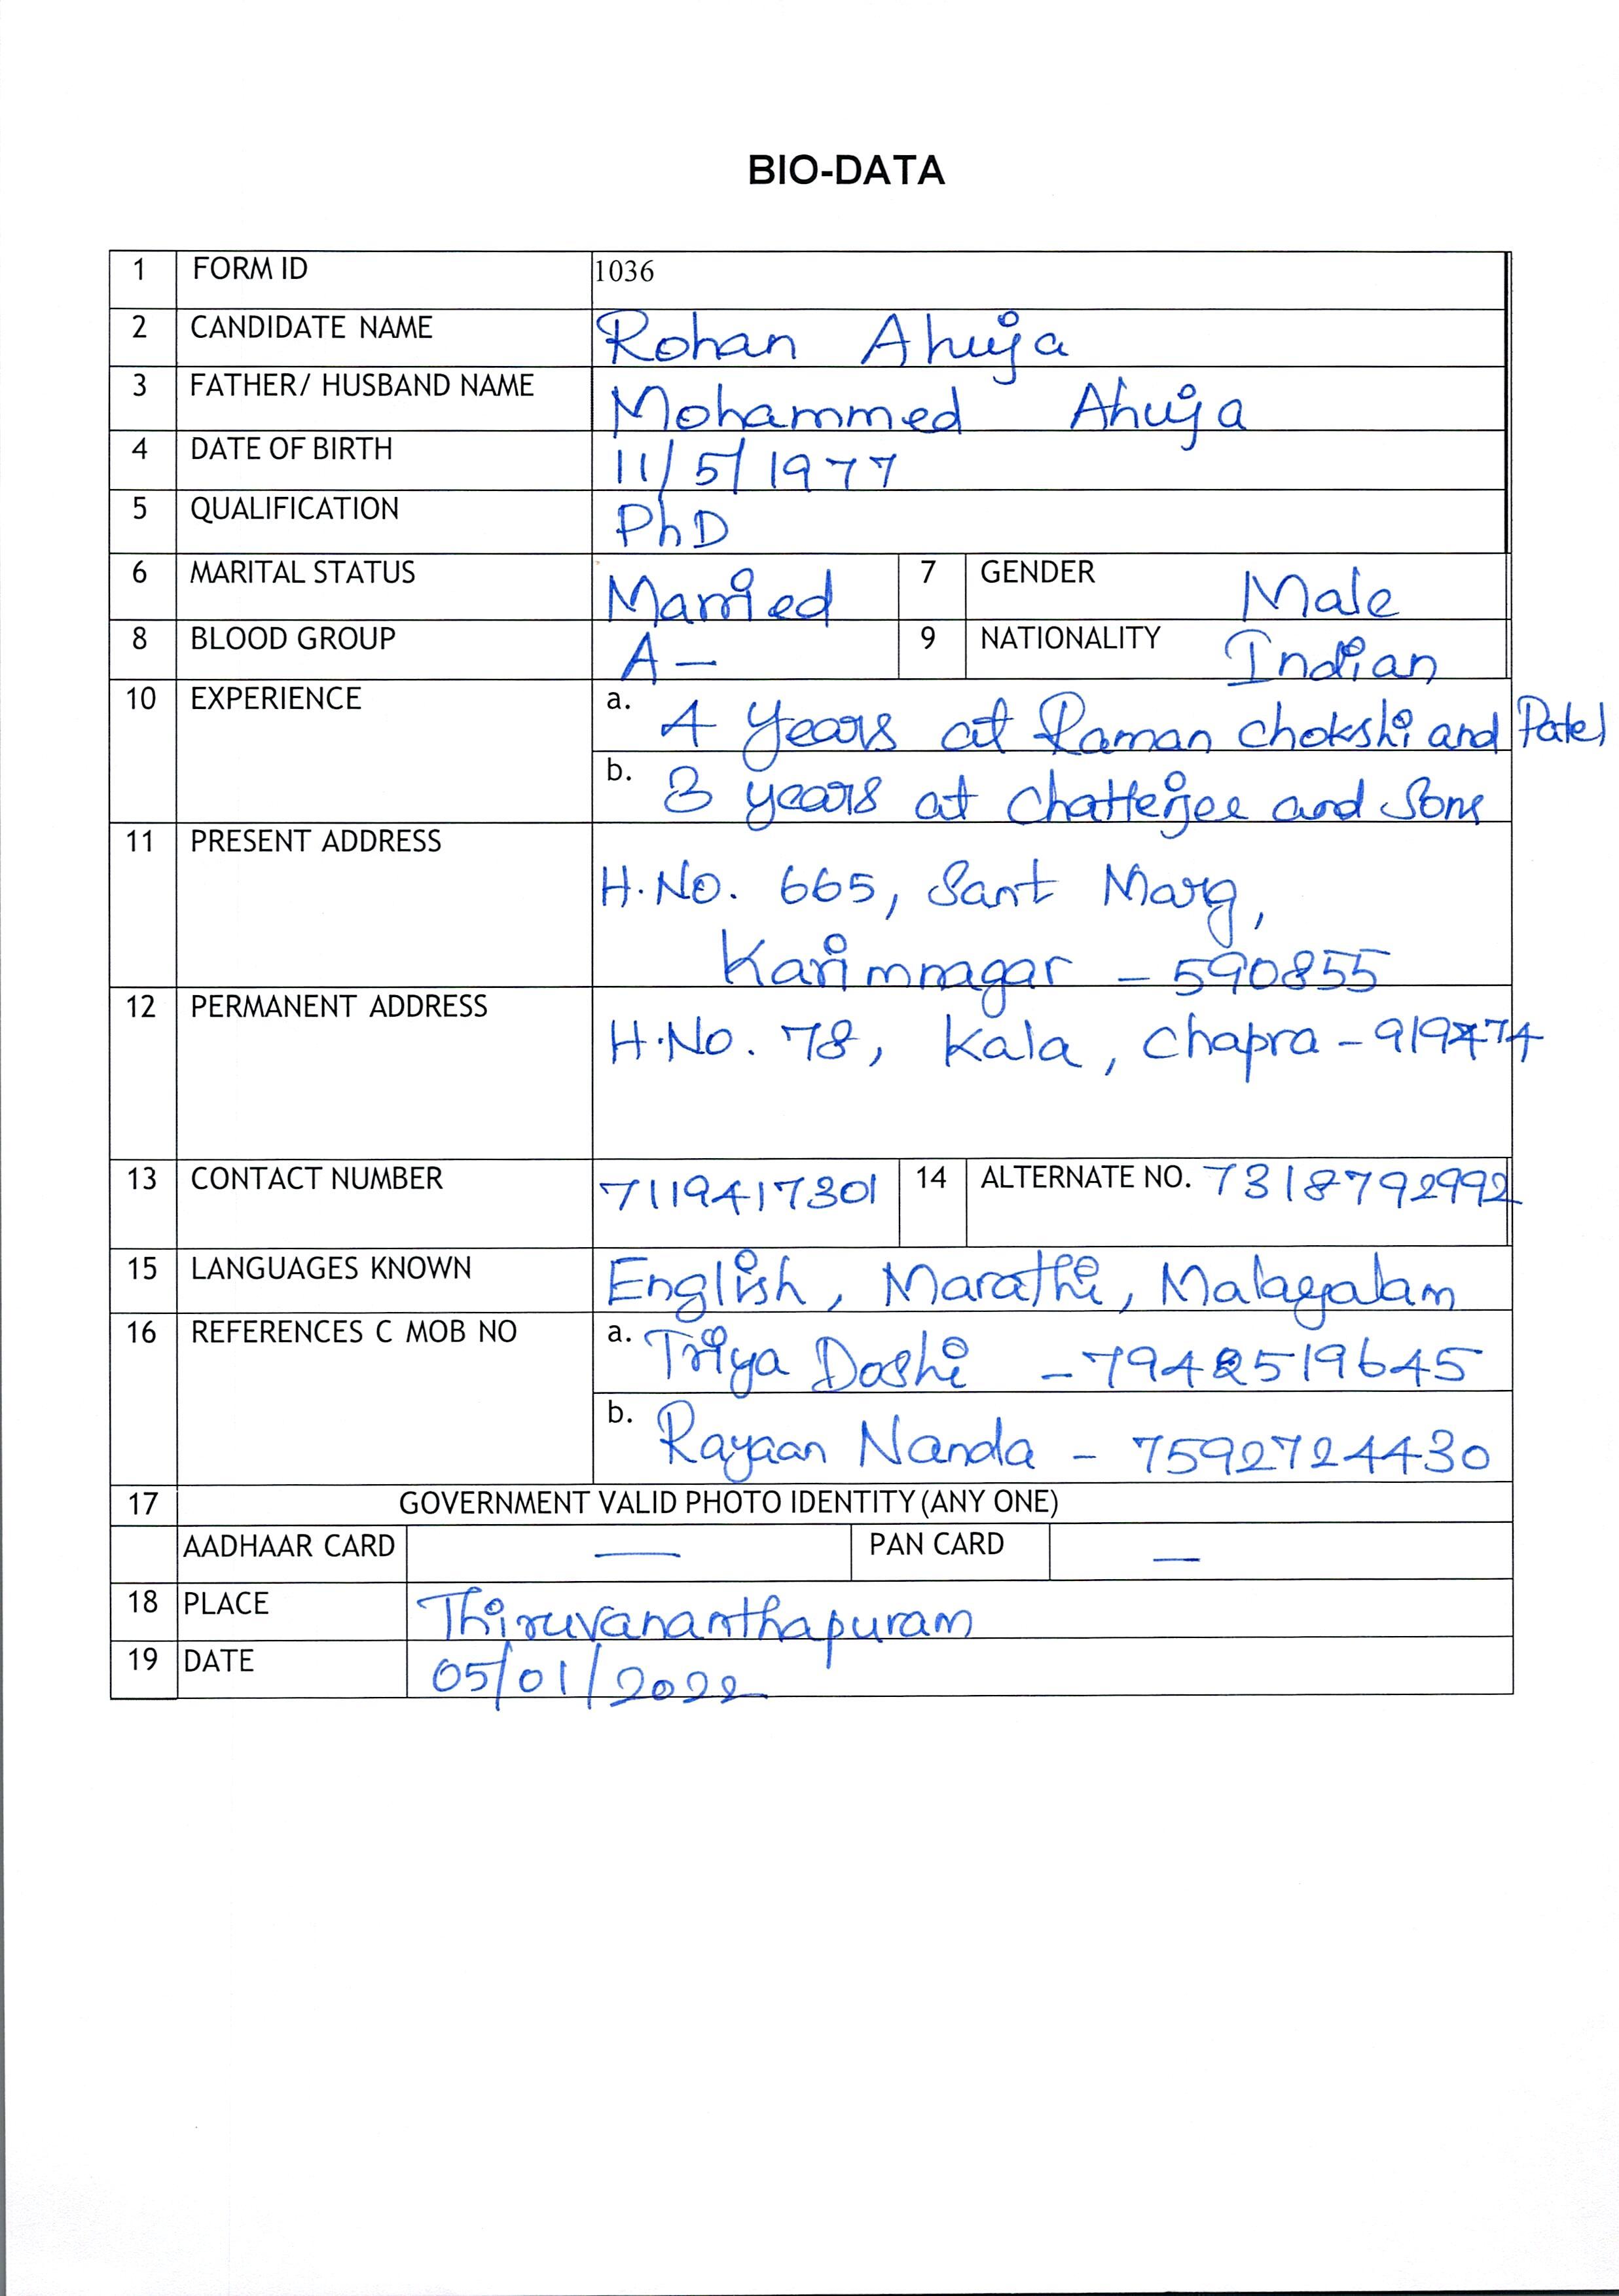 BIO-DATA
1 FORM ID 1036
2 CANDIDATE NAME Rohan Ahuja
3 FATHER/ HUSBAND NAME Mohammed Ahuja
4 DATE OF BIRTH 11/5/1977
5 QUALIFICATION PhD
6 MARITAL STATUS Married 7 GENDER Male
8 BLOOD GROUP A- 9 NATIONALITY Indian
10 EXPERIENCE a. 4 years at Raman Chokshi and Patel
b. 3 years at Chatterjee and Sons
11 PRESENT ADDRESS
H.No. 665, Sant Marg,
Karimnagar - 590855
12 PERMANENT ADDRESS
H.No. 78, Kala, Chapra - 919474
13 CONTACT NUMBER 7119417301 14 ALTERNATE NO. 7318792992
15 LANGUAGES KNOWN English, Marathi, Malayalam
16 REFERENCES C MOB NO a. Triya Doshi - 7942519645
b. Rayaan Nanda - 7592724430
17 GOVERNMENT VALID PHOTO IDENTITY (ANY ONE)
AADHAAR CARD — PAN CARD —
18 PLACE Thiruvananthapuram
19 DATE 05/01/2022